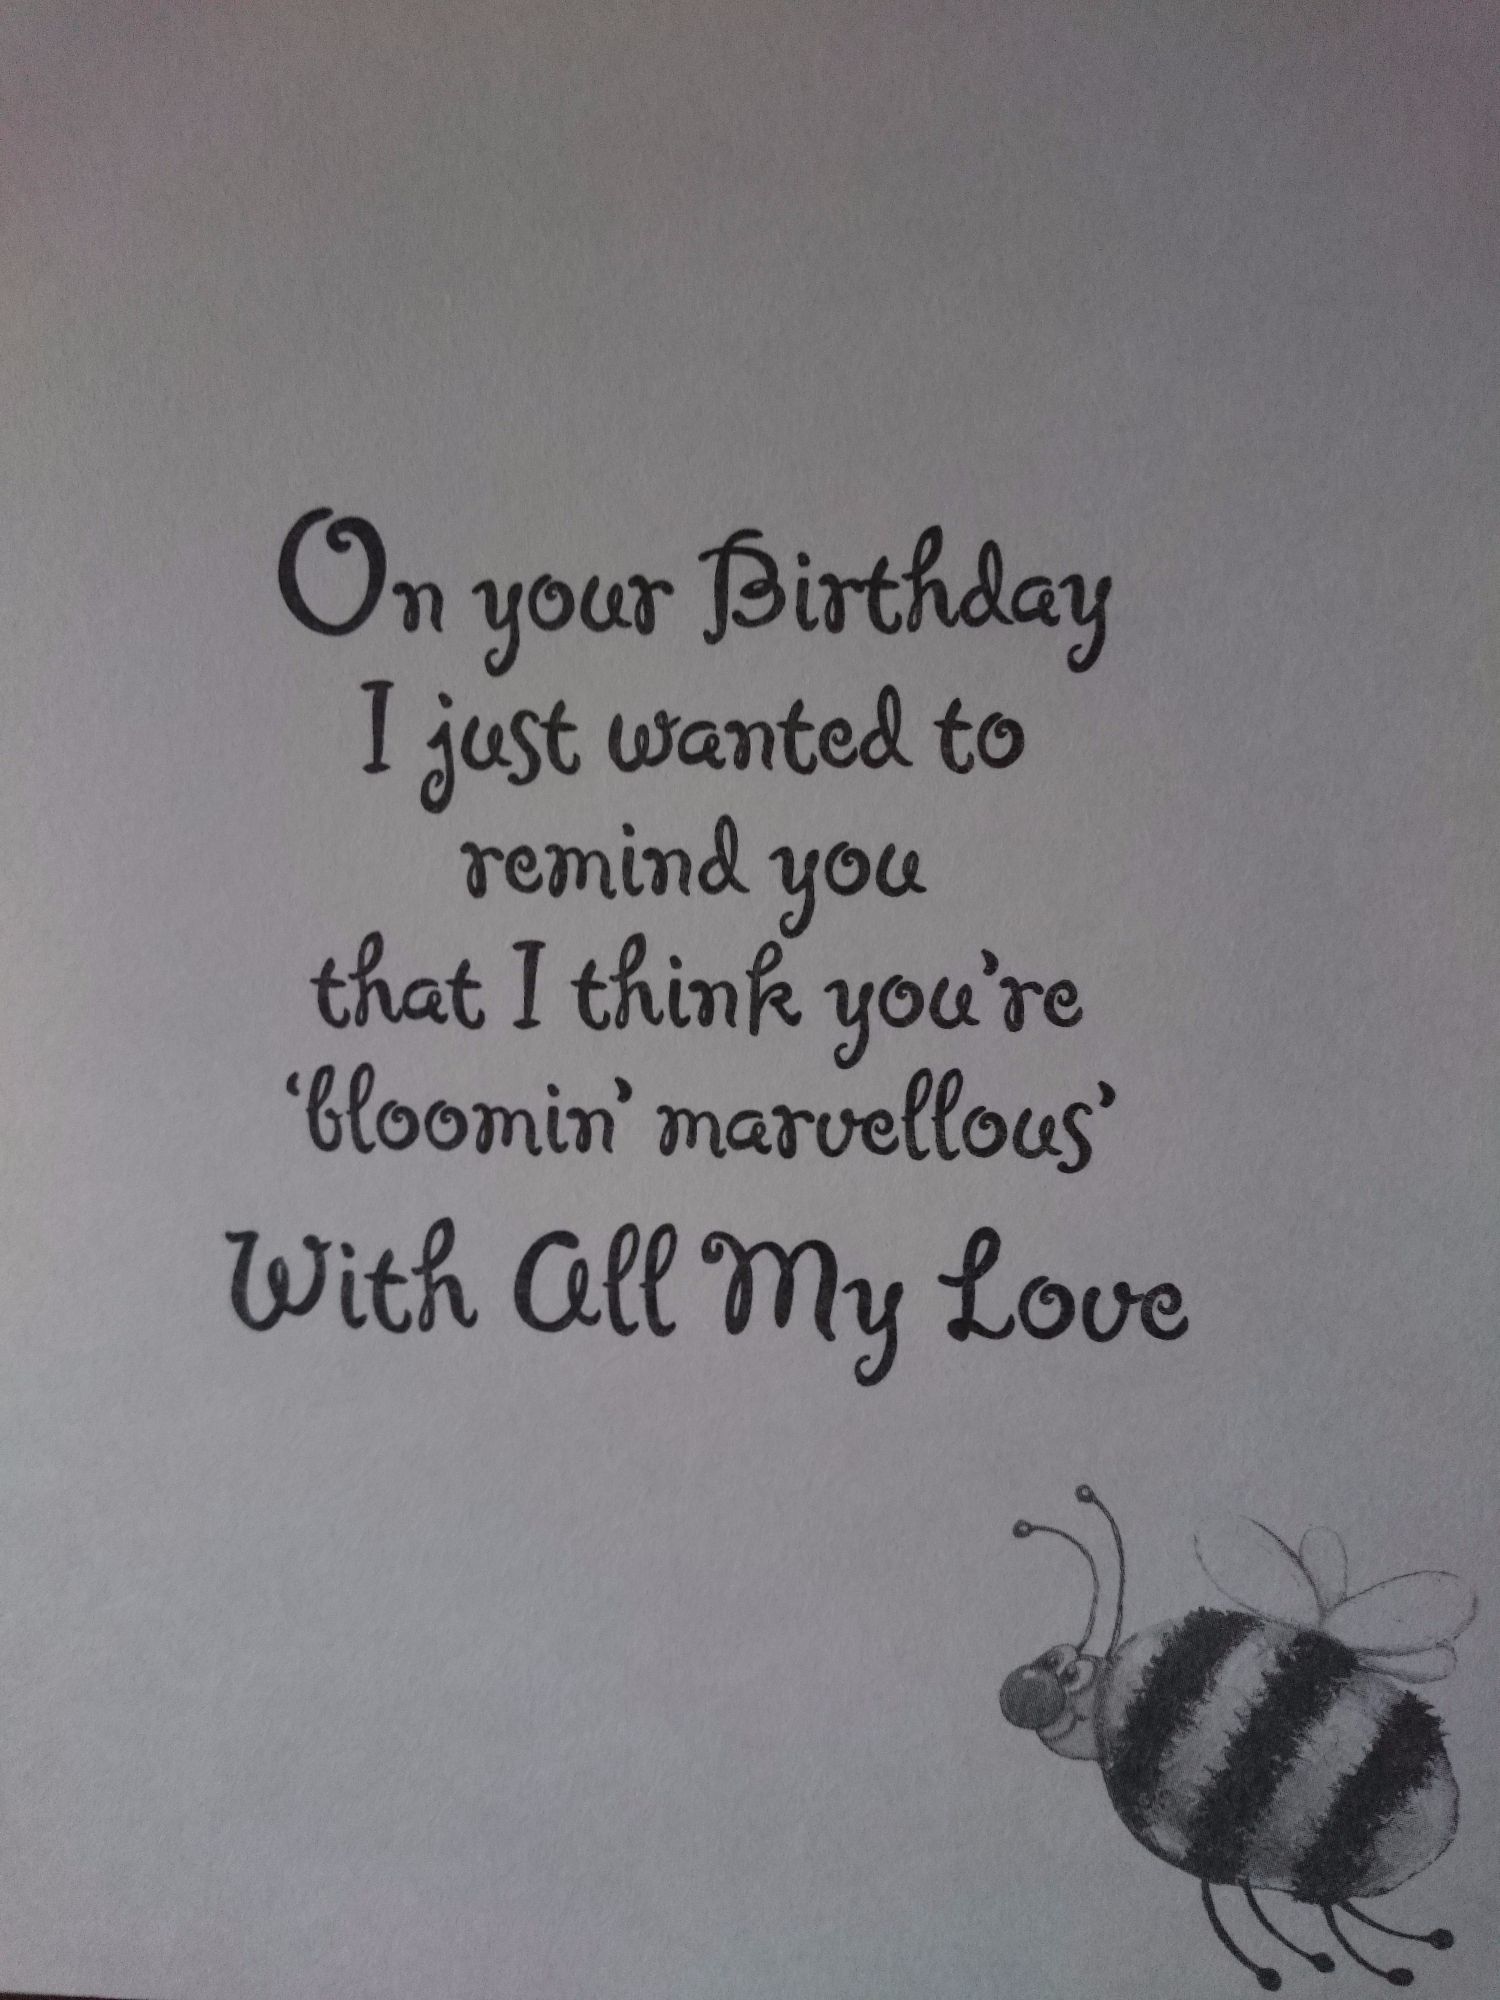 On your Birthday
I just wanted to
remind you
that I think you're
‘bloomin’ marvellous’
With All My Love